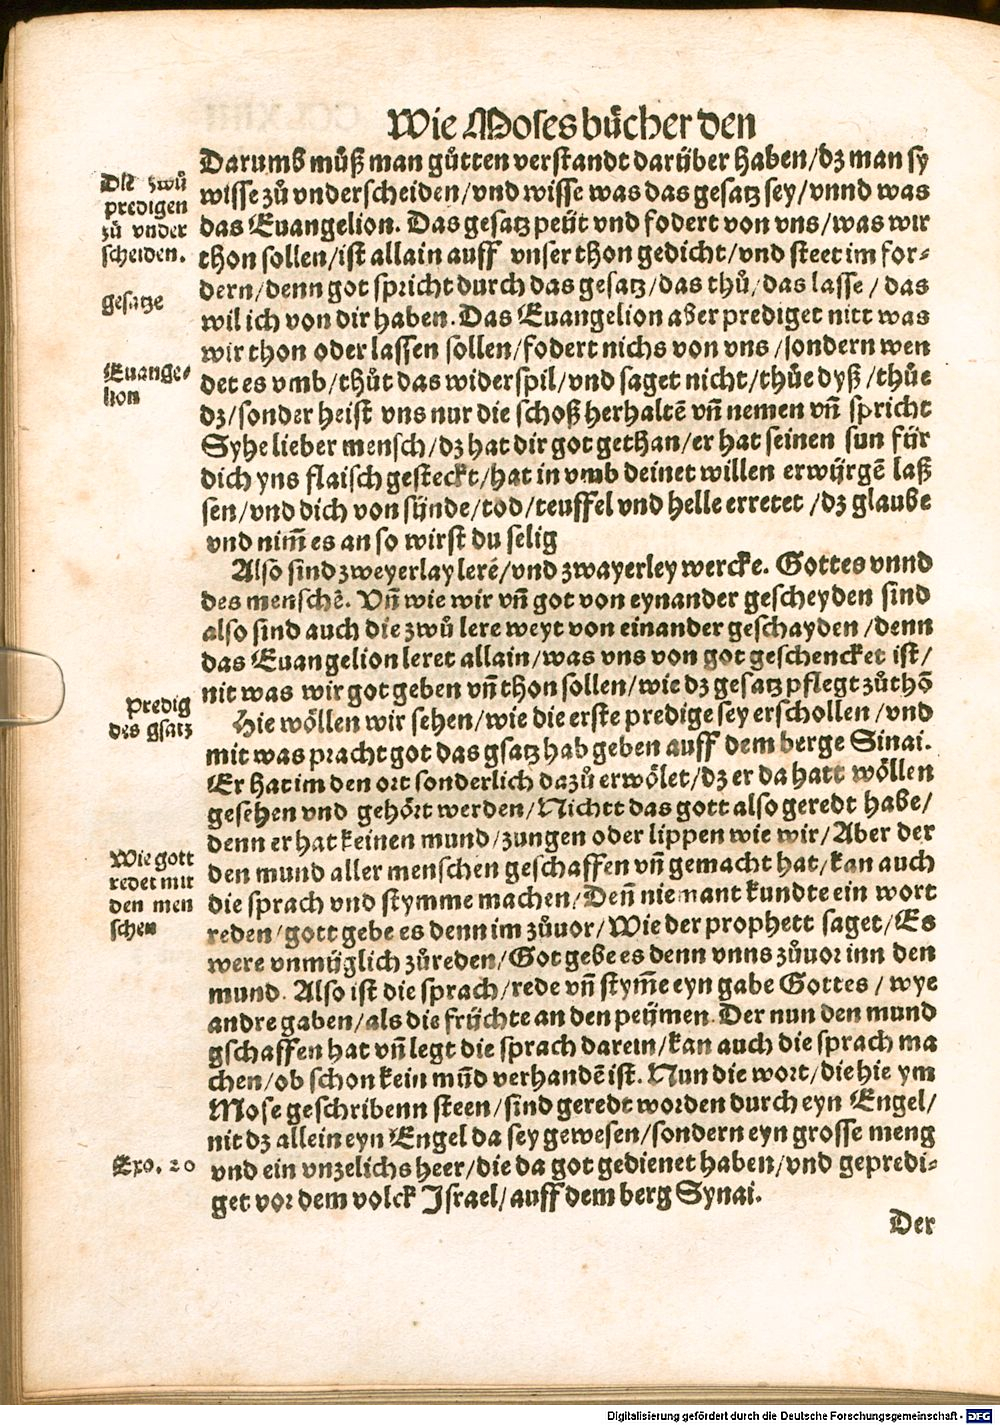 Wie Moses bücher den
Darumb můß man gůtten verstandt darüber haben/dz man sy
wisse zů vnderscheiden/vnd wisse was das gesatz sey/vnnd was
das Euangelion. Das gesatz peüt vnd fodert von vns/was wir
thon sollen/ist allain auff vnser thon gedicht/vnd steet im for⸗
dern/denn got spricht durch das gesatz/das thů/das lasse/das
wil ich von dir haben. Das Euangelion aber prediget nitt was
wir thon oder lassen sollen/fodert nichs von vns/sondern wen
det es vmb/thůt das widerspil/vnd saget nicht/thůe dyß/thůe
dz/sonder heist vns nur die schoß herhaltē vñ nemen vñ spricht
Syhe lieber mensch/dz hat dir got gethan/er hat seinen sun für
dich yns flaisch gesteckt/hat in vmb deinet willen erwürgē laß
sen/vnd dich von sünde/tod/teuffel vnd helle erretet/dz glaube
vnd nim̄ es an so wirst du selig
Also sind zweyerlay lerē/vnd zwayerley wercke. Gottes vnnd
des menschē. Vñ wie wir vñ got von eynander gescheyden sind
also sind auch die zwů lere weyt von einander geschayden/denn
das Euangelion leret allain/was vns von got geschencket ist/
nit was wir got geben vñ thon sollen/wie dz gesatz pflegt zůthō
Hie wöllen wir sehen/wie die erste predige sey erschollen/vnd
mit was pracht got das gsatz hab geben auff dem berge Sinai.
Er hat im den ort sonderlich dazů erwölet/dz er da hatt wöllen
gesehen vnd gehört werden/Nichtt das gott also geredt habe/
denn er hat keinen mund/zungen oder lippen wie wir/Aber der
den mund aller menschen geschaffen vñ gemacht hat/kan auch
die sprach vnd stymme machen/Deñ niemant kundte ein wort
reden/gott gebe es denn im zůuor/Wie der prophett saget/Es
were vnmüglich zůreden/Got gebe es denn vnns zůuor inn den
mund. Also ist die sprach/rede vñ stym̄e eyn gabe Gottes/wye
andre gaben/als die früchte an den peümen. Der nun den mund
gschaffen hat vñ legt die sprach darein/kan auch die sprach ma
chen/ob schon kein mūd verhandē ist. Nun die wort/die hie ym
Mose geschribenn steen/sind geredt worden durch eyn Engel/
nit dz allein eyn Engel da sey gewesen/sondern eyn grosse meng
vnd ein vnzelichs heer/die da got gedienet haben/vnd gepredi⸗
get vor dem volck Israel/auff dem berg Synai.
Der
Die zwů
predigen
zů vnder
scheiden.
gesatze
Euange⸗
lion
Predig
des gsatz
Wie gott
redet mit
den men
schen
Exo. 20
Digitalisierung gefördert durch die Deutsche Forschungsgemeinschaft - DFG